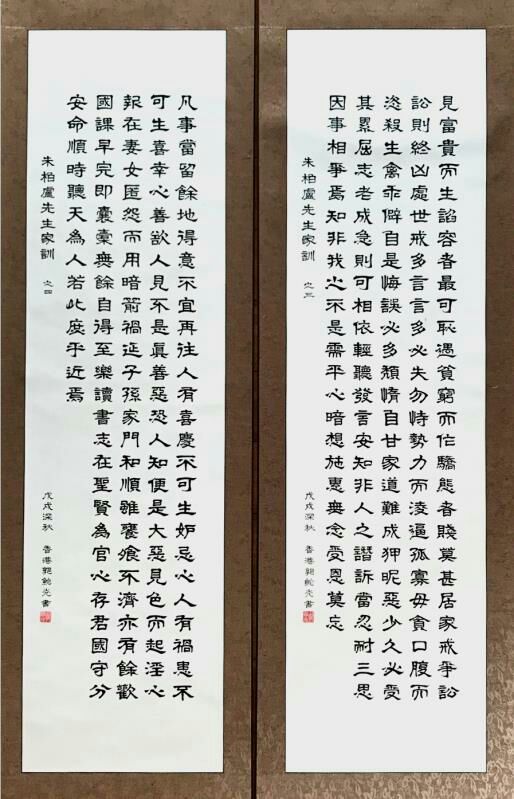 見富貴而生諂容者最可恥遇貧窮而作驕態者賤莫甚居家戒爭訟
訟則終凶處世戒多言言多必失勿恃勢力而淩逼孤寡毋貪口腹而
恣殺生禽乖僻自是悔誤必多頹惰自甘家道難成狎昵惡少久必受
其累屈志老成急則可相依輕聽發言安知非人之譖訴當忍耐三思
因事相爭焉知非我之不是需平心暗想施惠無念受恩莫忘
朱柏廬先生家訓 之三
戊戌深秋 香港 書
凡事當留餘地得意不宜再往人有喜慶不可生妒忌心人有禍患不
可生喜幸心善欲人見不是真善惡恐人知便是大惡見色而起淫心
報在妻女匿怨而用暗箭禍延子孫家門和順雖饔飧不濟亦有餘歡
國課早完即囊橐無餘自得至樂讀書志在聖賢為官心存君國守分
安命順時聽天為人若此庶乎近焉
朱柏廬先生家訓 之四
戊戌深秋 香港 書